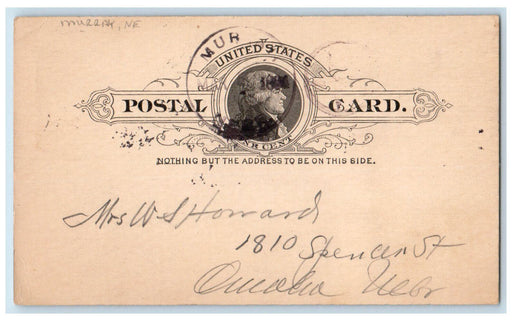 MURRAY, NE
MUR
UNITED STATES
POSTAL CARD.
ONE CENT
NOTHING BUT THE ADDRESS TO BE ON THIS SIDE.
Mrs W S Howard
1810 Spencer St
Omaha Nebr